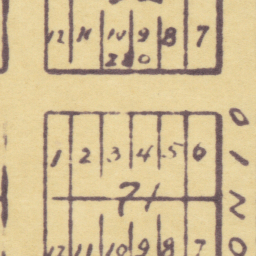 12 11 10 9 8 7
280
1 2 3 4 5 6
71
12 11 10 9 8 7
0
1
2
0